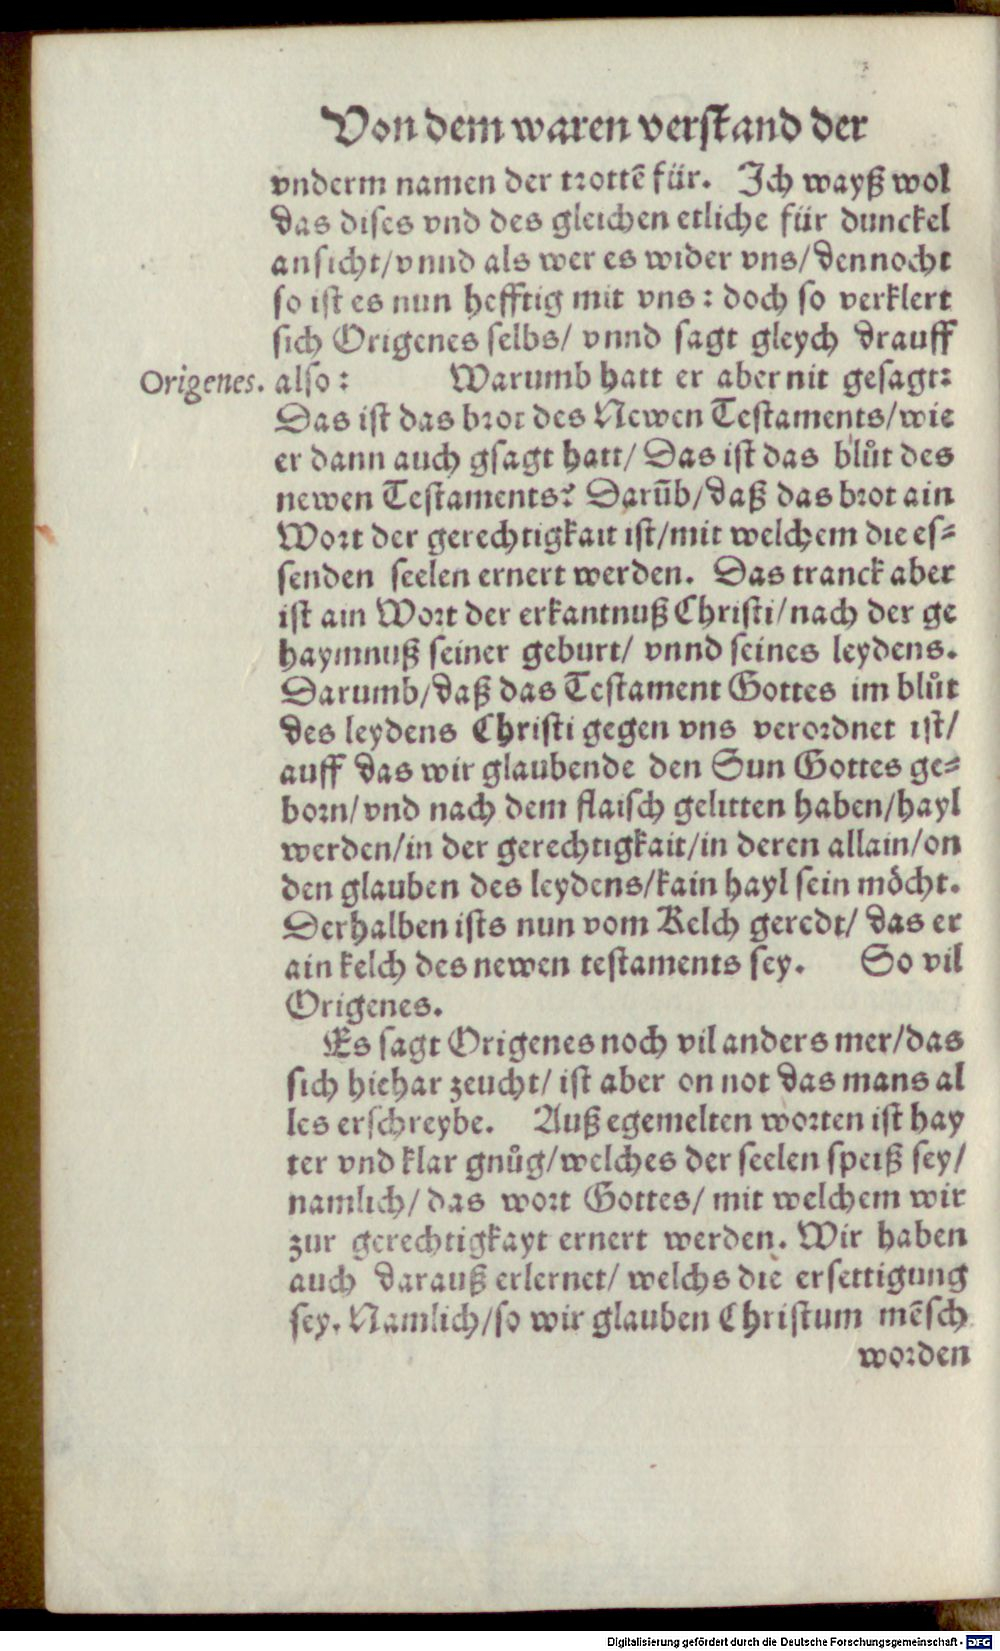 Von dem waren verstand der
vnderm namen der trottē für. Ich wayß wol
das dises vnd des gleichen etliche für dunckel
ansicht/vnnd als wer es wider vns/dennocht
so ist es nun hefftig mit vns: doch so verklert
sich Origenes selbs/ vnnd sagt gleych drauff
Origenes. also: Warumb hatt er aber nit gesagt:
Das ist das brot des Newen Testaments/wie
er dann auch gsagt hatt/ Das ist das blůt des
newen Testaments? Darūb/daß das brot ain
Wort der gerechtigkait ist/mit welchem die es-
senden seelen ernert werden. Das tranck aber
ist ain Wort der erkantnuß Christi/nach der ge
haymnuß seiner geburt/ vnnd seines leydens.
Darumb/daß das Testament Gottes im blůt
des leydens Christi gegen vns verordnet ist/
auff das wir glaubende den Sun Gottes ge-
born/vnd nach dem flaisch gelitten haben/hayl
werden/in der gerechtigkait/in deren allain/on
den glauben des leydens/kain hayl sein möcht.
Derhalben ists nun vom Kelch geredt/ das er
ain kelch des newen testaments sey. So vil
Origenes.
Es sagt Origenes noch vil anders mer/das
sich hiehar zeucht/ ist aber on not das mans al
les erschreybe. Auß egemelten worten ist hay
ter vnd klar gnůg/welches der seelen speiß sey/
namlich/ das wort Gottes/ mit welchem wir
zur gerechtigkayt ernert werden. Wir haben
auch darauß erlernet/ welchs die ersettigung
sey. Namlich/so wir glauben Christum mēsch
worden
Digitalisierung gefördert durch die Deutsche Forschungsgemeinschaft - DFG